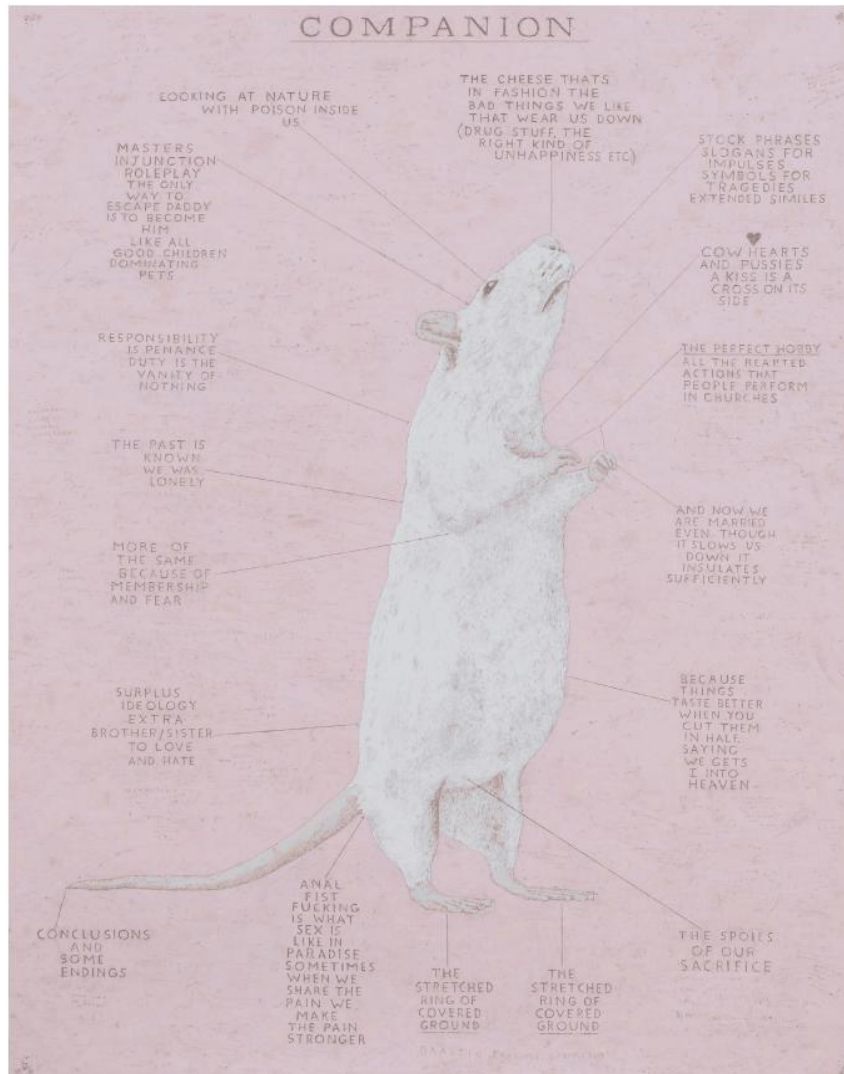 COMPANION
LOOKING AT NATURE
WITH POISON INSIDE
US
THE CHEESE THATS
IN FASHION THE
BAD THINGS WE LIKE
THAT WEAR US DOWN
(DRUG STUFF, THE
RIGHT KIND OF
UNHAPPINESS ETC)
MASTERS
INJUNCTION
ROLEPLAY
THE ONLY
WAY TO
ESCAPE DADDY
IS TO BECOME
HIM
LIKE ALL
GOOD CHILDREN
DOMINATING
PETS
STOCK PHRASES
SLOGANS FOR
IMPULSES
SYMBOLS FOR
TRAGEDIES
EXTENDED SIMILES
COW HEARTS
AND PUSSIES
A KISS IS A
CROSS ON ITS
SIDE
RESPONSIBILITY
IS PENANCE
DUTY IS THE
VANITY OF
NOTHING
THE PERFECT HOBBY
ALL THE REAPTED
ACTIONS THAT
PEOPLE PERFORM
IN CHURCHES
THE PAST IS
KNOWN
WE WAS
LONELY
AND NOW WE
ARE MARRIED
EVEN THOUGH
IT SLOWS US
DOWN IT
INSULATES
SUFFICIENTLY
MORE OF
THE SAME
BECAUSE OF
MEMBERSHIP
AND FEAR
SURPLUS
IDEOLOGY
EXTRA
BROTHER/SISTER
TO LOVE
AND HATE
BECAUSE
THINGS
TASTE BETTER
WHEN YOU
CUT THEM
IN HALF
SAYING
WE GETS
I INTO
HEAVEN
CONCLUSIONS
AND
SOME
ENDINGS
ANAL
FIST
FUCKING
IS WHAT
SEX IS
LIKE IN
PARADISE
SOMETIMES
WHEN WE
SHARE THE
PAIN WE
MAKE
THE PAIN
STRONGER
THE
STRETCHED
RING OF
COVERED
GROUND
THE
STRETCHED
RING OF
COVERED
GROUND
THE SPOILS
OF OUR
SACRIFICE